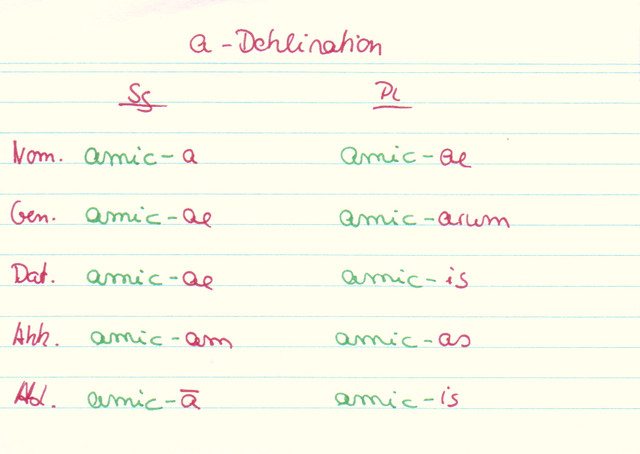 a - Deklination
Sg Pl
Nom. amic-a amic-ae
Gen. amic-ae amic-arum
Dat. amic-ae amic-is
Akk. amic-am amic-as
Abl. amic-ā amic-is